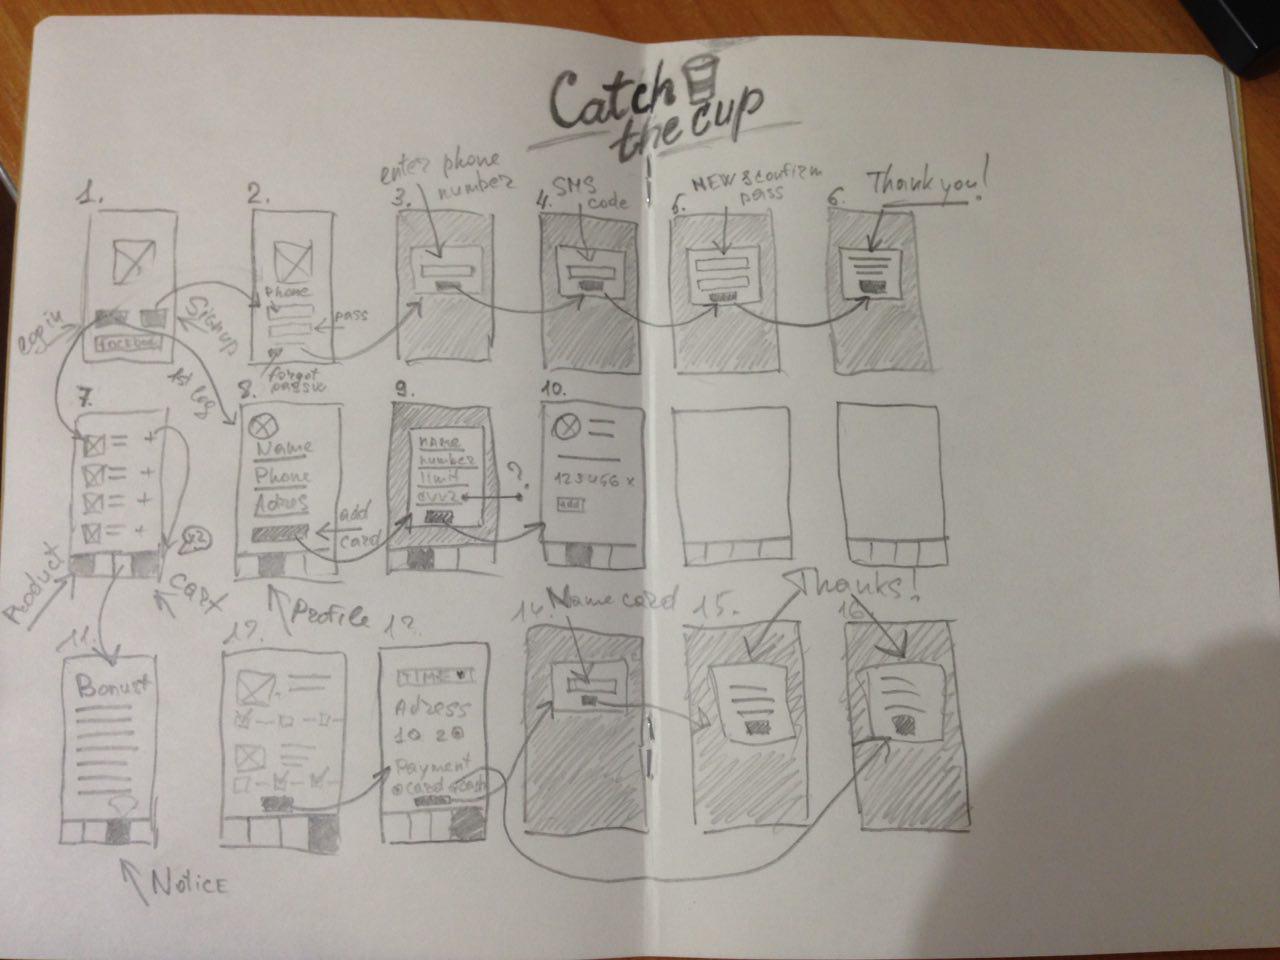 Catch
the cup
1.
Log in
Sign up
facebook
1st log
2.
Phone
pass
forgot
3.
enter phone
number
4.
SMS
code
5.
NEW & confirm
pass
6.
Thank you!
7.
Product
Cart
8.
Name
Phone
Adres
add
card
Profile
9.
name
number
limit
cvv2
?
10.
123456 x
add
11.
Bonust
Notice
12.
12.
TIME
Adress
10 20
Payment
card cash
14.
Name card
15.
Thanks!
16.